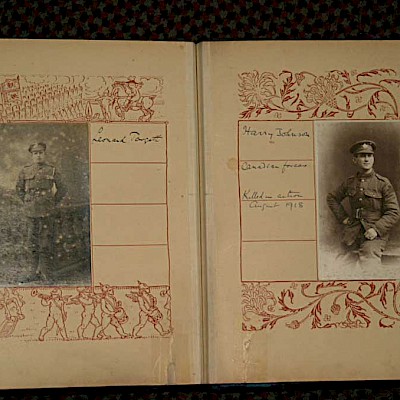 Leonard
Harry Johnson
Canadian forces
Killed in action
August 1918